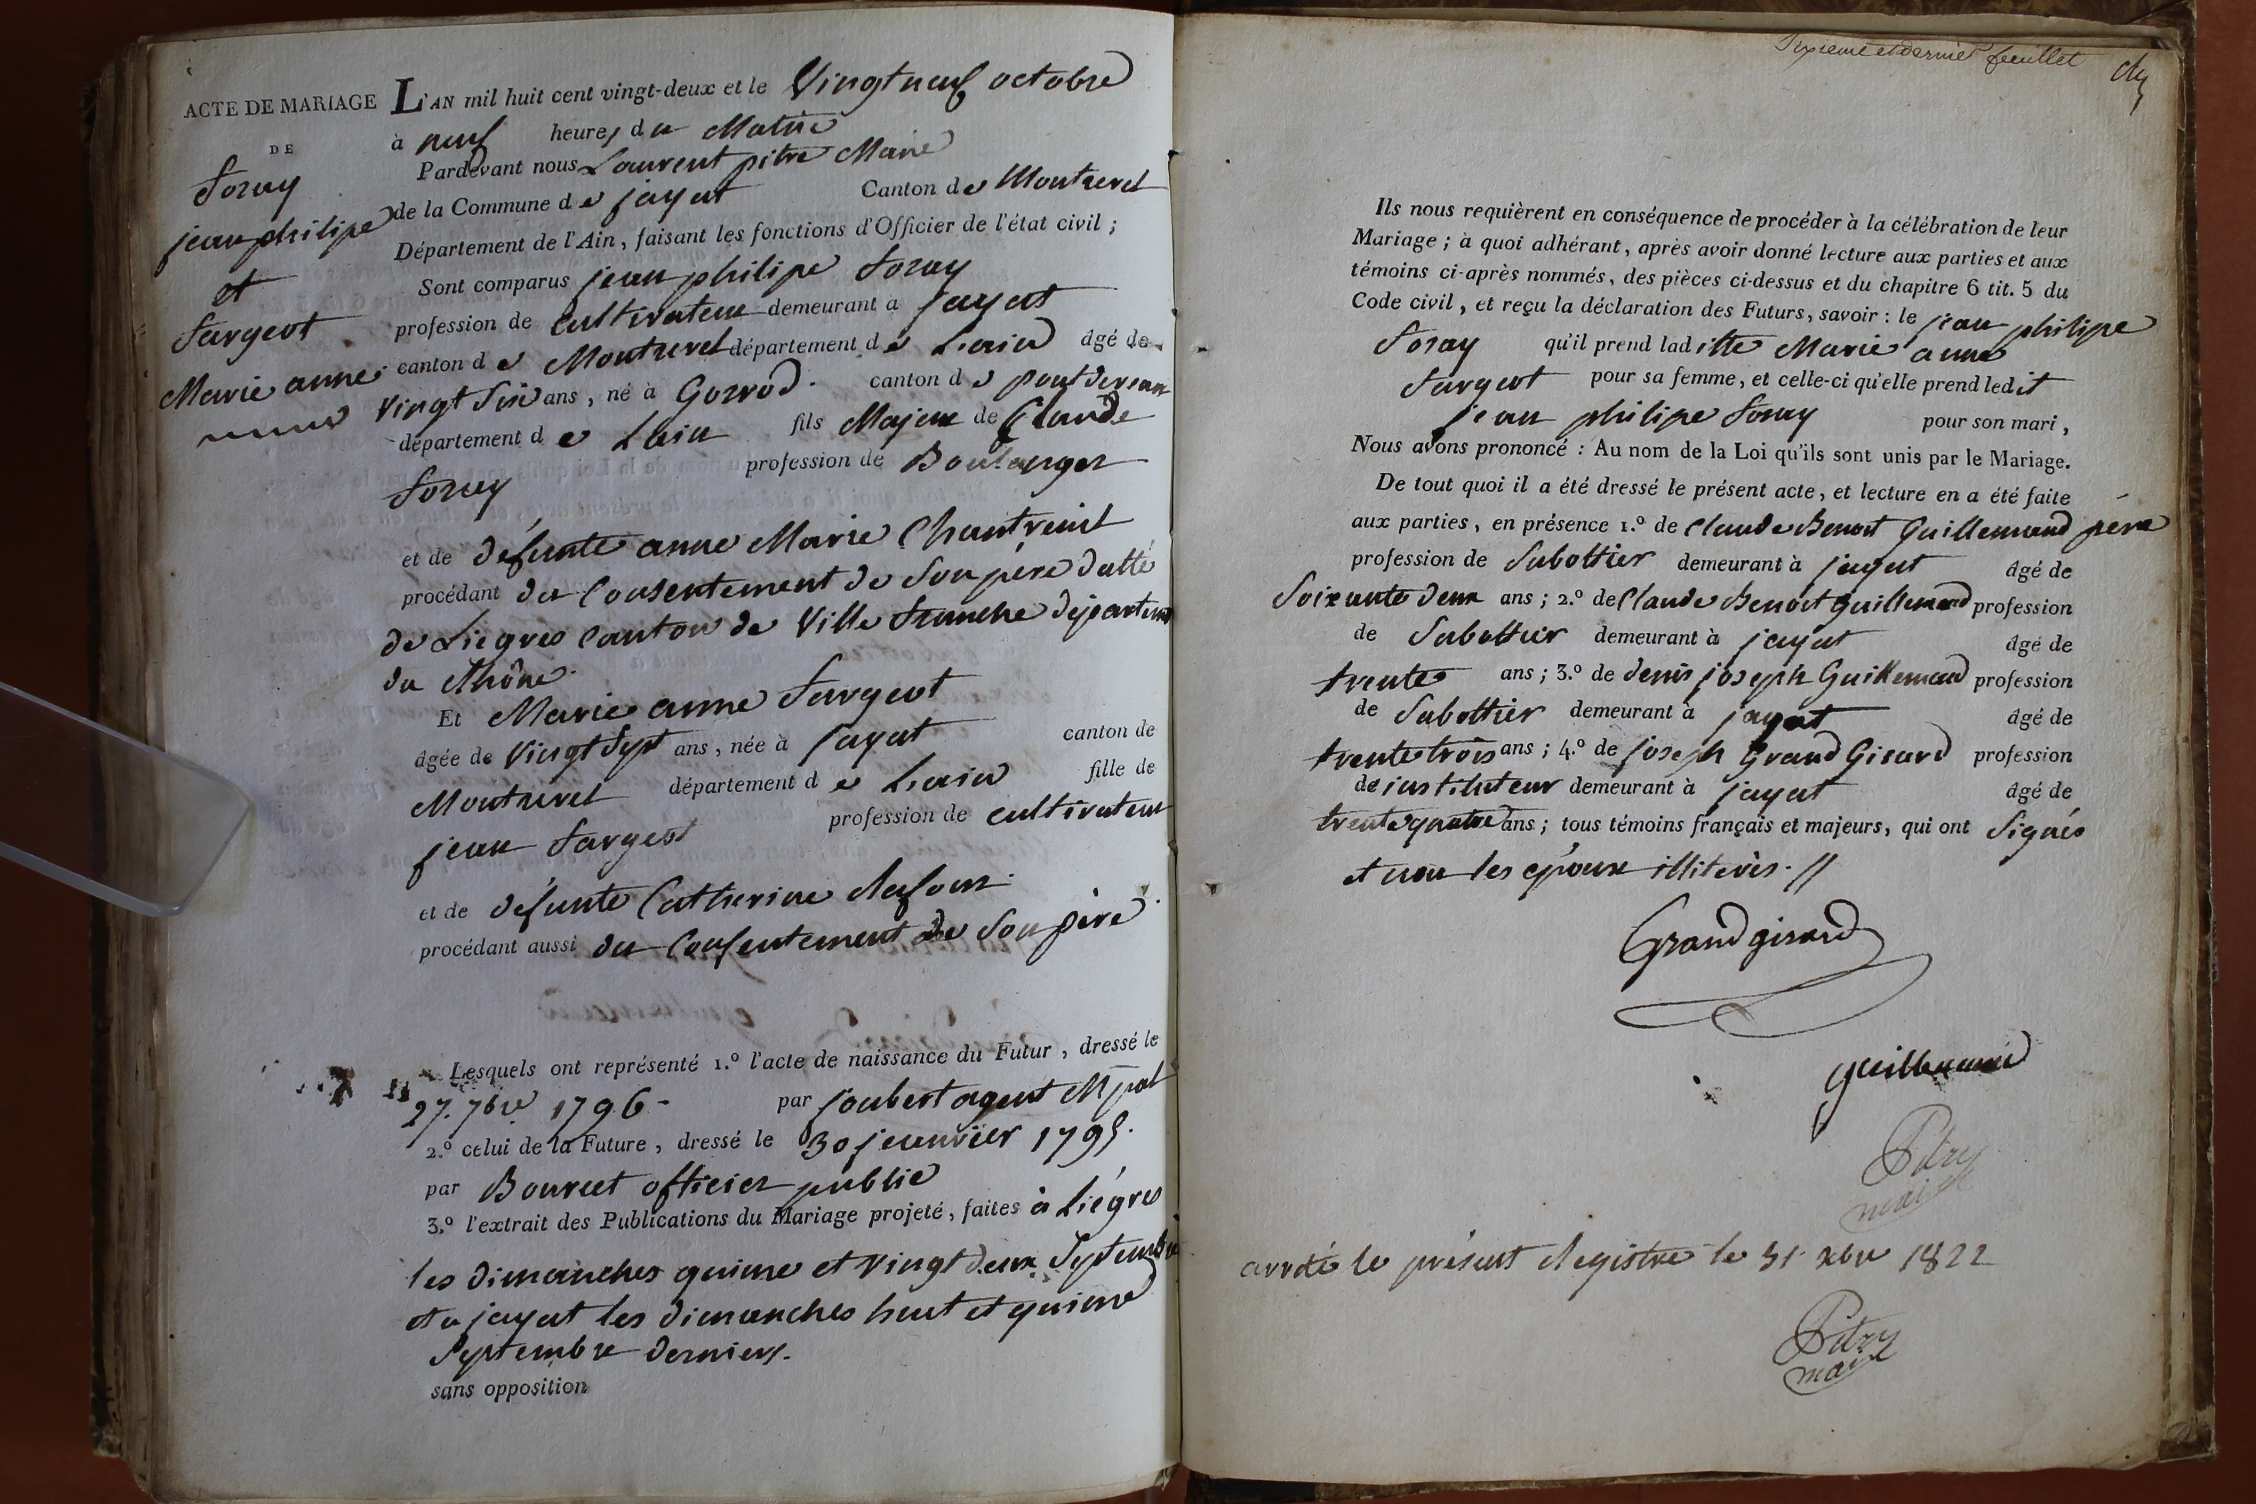 ACTE DE MARIAGE
DE
Foray
jean philipe
et
Fargeot
Marie anne
L'AN mil huit cent vingt-deux et le Vingt neuf octobre
à neuf heures du Matin
Pardevant nous Laurent pitre Maire
de la Commune de jayat Canton de Montrevel
Département de l'Ain, faisant les fonctions d'Officier de l'état civil;
Sont comparus jean philipe Foray
profession de cultivateur demeurant a jayat
canton de Montrevel département de Lain âgé de
Vingt Six ans, né à Gorrod. canton de pont de vaux
département de Lain fils Majeur de Claude
Foray profession de Boulanger
et de défunte anne Marie Chantrein
procédant du Consentement de Son père datté
de Liegres Canton de Ville franche département
du Rhône.
Et Marie anne Fargeot
âgée de Vingt Sept ans, née à jayat canton de
Montrevel département de Lain fille de
jean Fargeot profession de cultivateur
et de défunte Catherine Lafour
procédant aussi du Consentement de Son père
Lesquels ont représenté 1.º l'acte de naissance du Futur, dressé le
27. 7bre 1796 - par joubert agent Mpal
2.º celui de la Future, dressé le 30 jeanvier 1795.
par Bourcet officier public
3.º l'extrait des Publications du Mariage projeté, faites à Liégres
les dimanches quinze et vingt deux Septembre
et a jayat les dimanches huit et quinze
Septembre derniers.
sans opposition
Sixieme et dernier feuillet
Ils nous requièrent en conséquence de procéder à la célébration de leur
Mariage; à quoi adhérant, après avoir donné lecture aux parties et aux
témoins ci-après nommés, des pièces ci-dessus et du chapitre 6 tit. 5 du
Code civil, et reçu la déclaration des Futurs, savoir: le jean philipe
Foray qu'il prend laditte Marie anne
Fargeot pour sa femme, et celle-ci qu'elle prend ledit
jean philipe Foray pour son mari,
Nous avons prononcé: Au nom de la Loi qu'ils sont unis par le Mariage.
De tout quoi il a été dressé le présent acte, et lecture en a été faite
aux parties, en présence 1.º de Claude Benoit Guillemaud père
profession de Sabottier demeurant à jayat âgé de
Soixante deux ans; 2.º de Claude Benoit Guillemaud profession
de Sabottier demeurant à jayat âgé de
trente ans; 3.º de denis joseph Guillemaud profession
de Sabottier demeurant à jayat âgé de
trente trois ans; 4.º de joseph Grand Girard profession
de instituteur demeurant à jayat âgé de
trente quatre ans; tous témoins français et majeurs, qui ont Signés
et non les époux illiterés. //
Grand girard
guillemaud
Pitre
maire
arreté le présent Registre le 31 xbre 1822
Pitre
maire